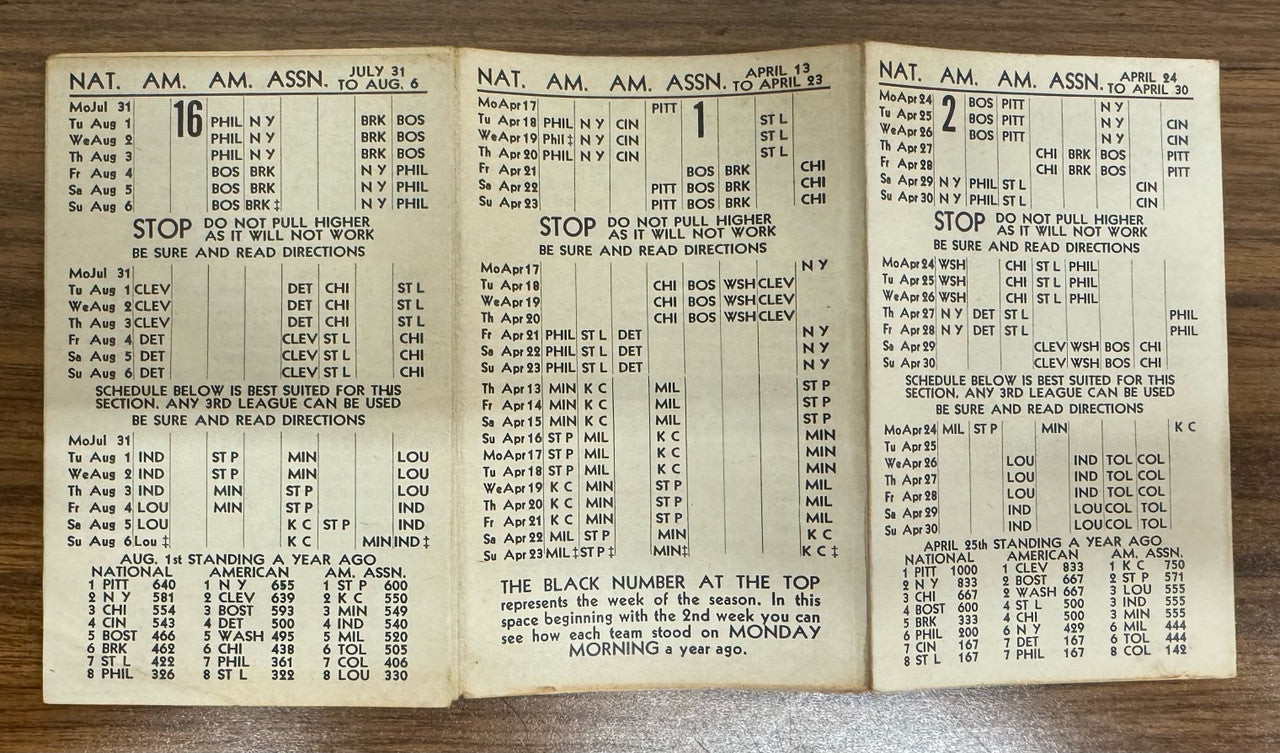 NAT. AM. AM. ASSN. JULY 31 TO AUG. 6
16
MoJul 31
Tu Aug 1 PHIL N Y BRK BOS
WeAug 2 PHIL N Y BRK BOS
Th Aug 3 PHIL N Y BRK BOS
Fr Aug 4 BOS BRK N Y PHIL
Sa Aug 5 BOS BRK N Y PHIL
Su Aug 6 BOS BRK ‡ N Y PHIL
STOP DO NOT PULL HIGHER
AS IT WILL NOT WORK
BE SURE AND READ DIRECTIONS
MoJul 31
Tu Aug 1 CLEV DET CHI ST L
WeAug 2 CLEV DET CHI ST L
Th Aug 3 CLEV DET CHI ST L
Fr Aug 4 DET CLEV ST L CHI
Sa Aug 5 DET CLEV ST L CHI
Su Aug 6 DET CLEV ST L CHI
SCHEDULE BELOW IS BEST SUITED FOR THIS
SECTION. ANY 3RD LEAGUE CAN BE USED
BE SURE AND READ DIRECTIONS
MoJul 31
Tu Aug 1 IND ST P MIN LOU
WeAug 2 IND ST P MIN LOU
Th Aug 3 IND MIN ST P LOU
Fr Aug 4 LOU MIN ST P IND
Sa Aug 5 LOU K C ST P IND
Su Aug 6 Lou ‡ K C MIN IND ‡
AUG. 1st STANDING A YEAR AGO
NATIONAL AMERICAN AM. ASSN.
1 PITT 640 1 N Y 655 1 ST P 600
2 N Y 581 2 CLEV 639 2 K C 550
3 CHI 554 3 BOST 593 3 MIN 549
4 CIN 543 4 DET 500 4 IND 540
5 BOST 466 5 WASH 495 5 MIL 520
6 BRK 462 6 CHI 438 6 TOL 505
7 ST L 422 7 PHIL 361 7 COL 406
8 PHIL 326 8 ST L 322 8 LOU 330
NAT. AM. AM. ASSN. APRIL 13 TO APRIL 23
1
MoApr17 PITT
Tu Apr 18 PHIL N Y CIN ST L
WeApr19 Phil ‡ N Y CIN ST L
Th Apr 20 PHIL N Y CIN ST L
Fr Apr 21 BOS BRK CHI
Sa Apr 22 PITT BOS BRK CHI
Su Apr 23 PITT BOS BRK CHI
STOP DO NOT PULL HIGHER
AS IT WILL NOT WORK
BE SURE AND READ DIRECTIONS
MoApr17 N Y
Tu Apr 18 CHI BOS WSH CLEV
WeApr19 CHI BOS WSH CLEV
Th Apr 20 CHI BOS WSH CLEV
Fr Apr 21 PHIL ST L DET N Y
Sa Apr 22 PHIL ST L DET N Y
Su Apr 23 PHIL ST L DET N Y
Th Apr 13 MIN K C MIL ST P
Fr Apr 14 MIN K C MIL ST P
Sa Apr 15 MIN K C MIL ST P
Su Apr 16 ST P MIL K C MIN
MoApr17 ST P MIL K C MIN
Tu Apr 18 ST P MIL K C MIN
WeApr 19 K C MIN ST P MIL
Th Apr 20 K C MIN ST P MIL
Fr Apr 21 K C MIN ST P MIL
Sa Apr 22 MIL ST P MIN K C
Su Apr 23 MIL ‡ ST P ‡ MIN‡ K C ‡
THE BLACK NUMBER AT THE TOP
represents the week of the season. In this
space beginning with the 2nd week you can
see how each team stood on MONDAY
MORNING a year ago.
NAT. AM. AM. ASSN. APRIL 24 TO APRIL 30
2
MoApr24 BOS PITT N Y
Tu Apr 25 BOS PITT N Y CIN
WeApr 26 BOS PITT N Y CIN
Th Apr 27 CHI BRK BOS PITT
Fr Apr 28 CHI BRK BOS PITT
Sa Apr 29 N Y PHIL ST L CIN
Su Apr 30 N Y PHIL ST L CIN
STOP DO NOT PULL HIGHER
AS IT WILL NOT WORK
BE SURE AND READ DIRECTIONS
MoApr 24 WSH CHI ST L PHIL
Tu Apr 25 WSH CHI ST L PHIL
WeApr 26 WSH CHI ST L PHIL
Th Apr 27 N Y DET ST L PHIL
Fr Apr 28 N Y DET ST L PHIL
Sa Apr 29 CLEV WSH BOS CHI
Su Apr 30 CLEV WSH BOS CHI
SCHEDULE BELOW IS BEST SUITED FOR THIS
SECTION. ANY 3RD LEAGUE CAN BE USED
BE SURE AND READ DIRECTIONS
MoApr 24 MIL ST P MIN K C
Tu Apr 25
WeApr 26 LOU IND TOL COL
Th Apr 27 LOU IND TOL COL
Fr Apr 28 LOU IND TOL COL
Sa Apr 29 IND LOU COL TOL
Su Apr 30 IND LOU COL TOL
APRIL 25th STANDING A YEAR AGO
NATIONAL AMERICAN AM. ASSN.
1 PITT 1000 1 CLEV 833 1 K C 750
2 N Y 833 2 BOST 667 2 ST P 571
3 CHI 667 2 WASH 667 3 LOU 555
4 BOST 600 4 ST L 500 3 IND 555
5 BRK 333 4 CHI 500 3 MIN 555
6 PHIL 200 6 N Y 429 6 MIL 444
7 CIN 167 7 DET 167 6 TOL 444
8 ST L 167 7 PHIL 167 8 COL 142